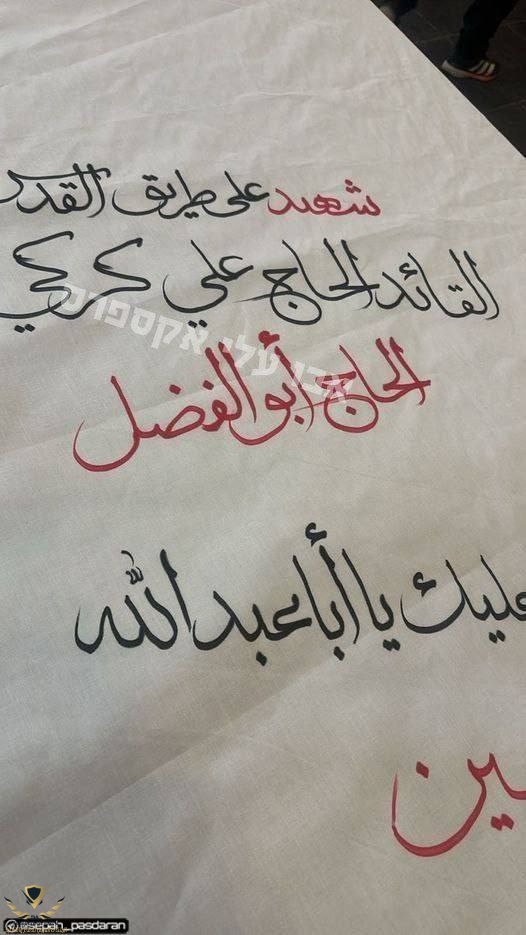 شهيد على طريق القدس
القائد الحاج علي كركي
אבו עלי אקספרס
الحاج أبو الفضل
عليك يا أبا عبد الله
ين
@sepah_pasdaran